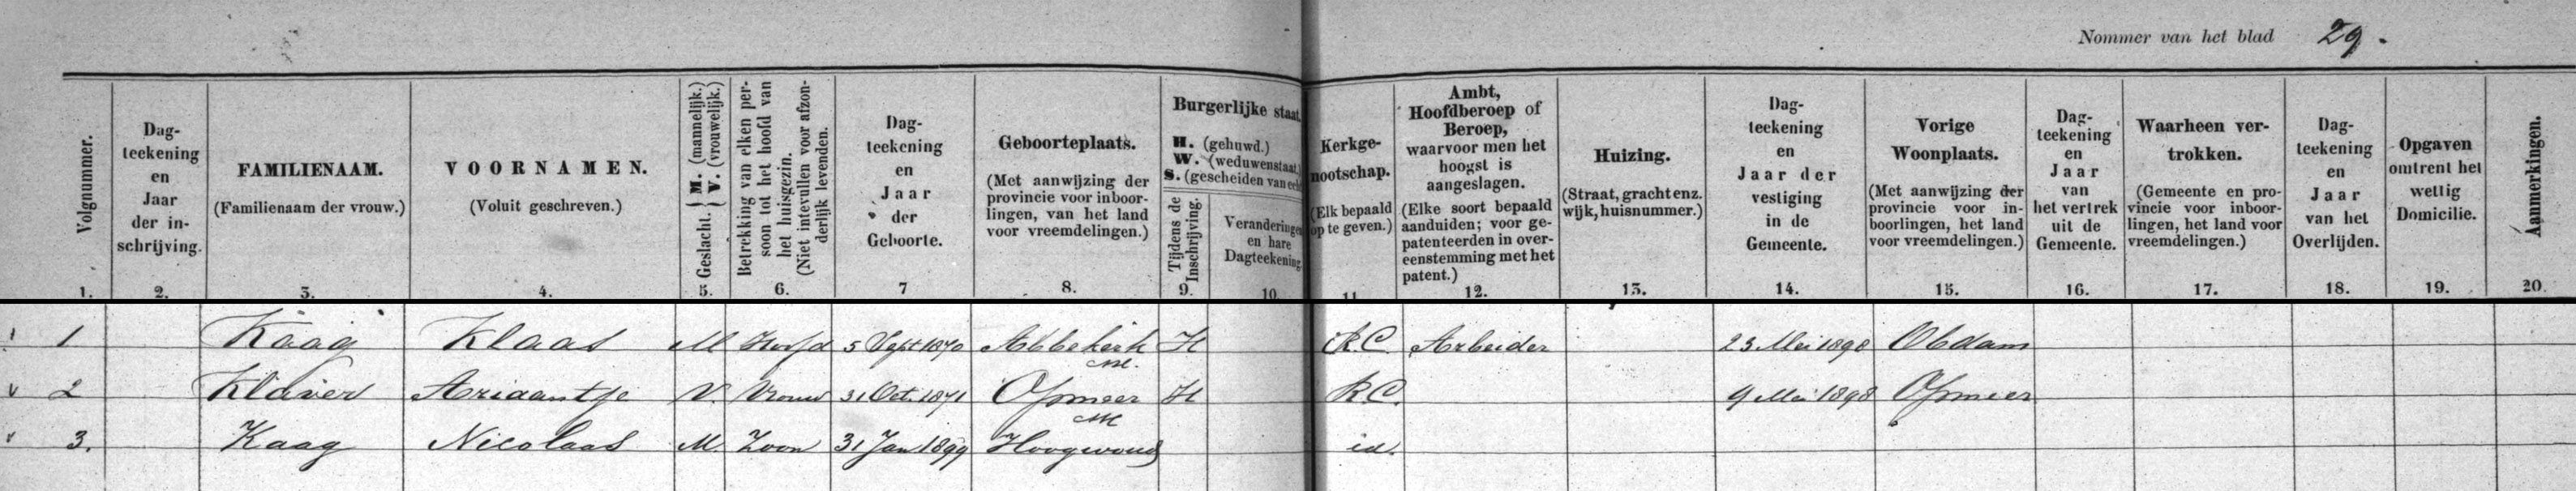 Nommer van het blad 29.
Volgnummer.
1.
Dag-
teekening
en
Jaar
der in-
schrijving.
2.
FAMILIENAAM.
(Familienaam der vrouw.)
3.
VOORNAMEN.
(Voluit geschreven.)
4.
Geslacht. { M. (mannelijk.)
V. (vrouwelijk.)
5.
Betrekking van elken per-
soon tot het hoofd van
het huisgezin.
(Niet intevullen voor afzon-
derlijk levenden.
6.
Dag-
teekening
en
Jaar
der
Geboorte.
7
Geboorteplaats.
(Met aanwijzing der
provincie voor inboor-
lingen, van het land
voor vreemdelingen.)
8.
Burgerlijke staat.
H. (gehuwd.)
W. (weduwenstaat.)
S. (gescheiden van echt
Tijdens de
Inschrijving.
9.
Veranderingen
en hare
Dagteekening
10.
Kerkge-
nootschap.
(Elk bepaald
op te geven.)
11
Ambt,
Hoofdberoep of
Beroep,
waarvoor men het
hoogst is
aangeslagen.
(Elke soort bepaald
aanduiden; voor ge-
patenteerden in over-
eenstemming met het
patent.)
12.
Huizing.
(Straat, gracht enz.
wijk, huisnummer.)
13.
Dag-
teekening
en
Jaar der
vestiging
in de
Gemeente.
14.
Vorige
Woonplaats.
(Met aanwijzing der
provincie voor in-
boorlingen, het land
voor vreemdelingen.)
15.
Dag-
teekening
en
Jaar
van
het vertrek
uit de
Gemeente.
16.
Waarheen ver-
trokken.
(Gemeente en pro-
vincie voor inboor-
lingen, het land voor
vreemdelingen.)
17.
Dag-
teekening
en
Jaar
van het
Overlijden.
18.
Opgaven
omtrent het
wettig
Domicilie.
19.
Aanmerkingen.
20.
1 Kaag Klaas M Hoofd 5 Sept 1870 Abbekerk H R.C. Arbeider 23 Mei 1898 Obdam
2 Klaver Ariaantje V. Vrouw 31 Oct. 1871 Opmeer H R.C. 9 Mei 1898 Opmeer
3. Kaag Nicolaas M. Zoon 31 Jan 1899 Hoogwoud id.